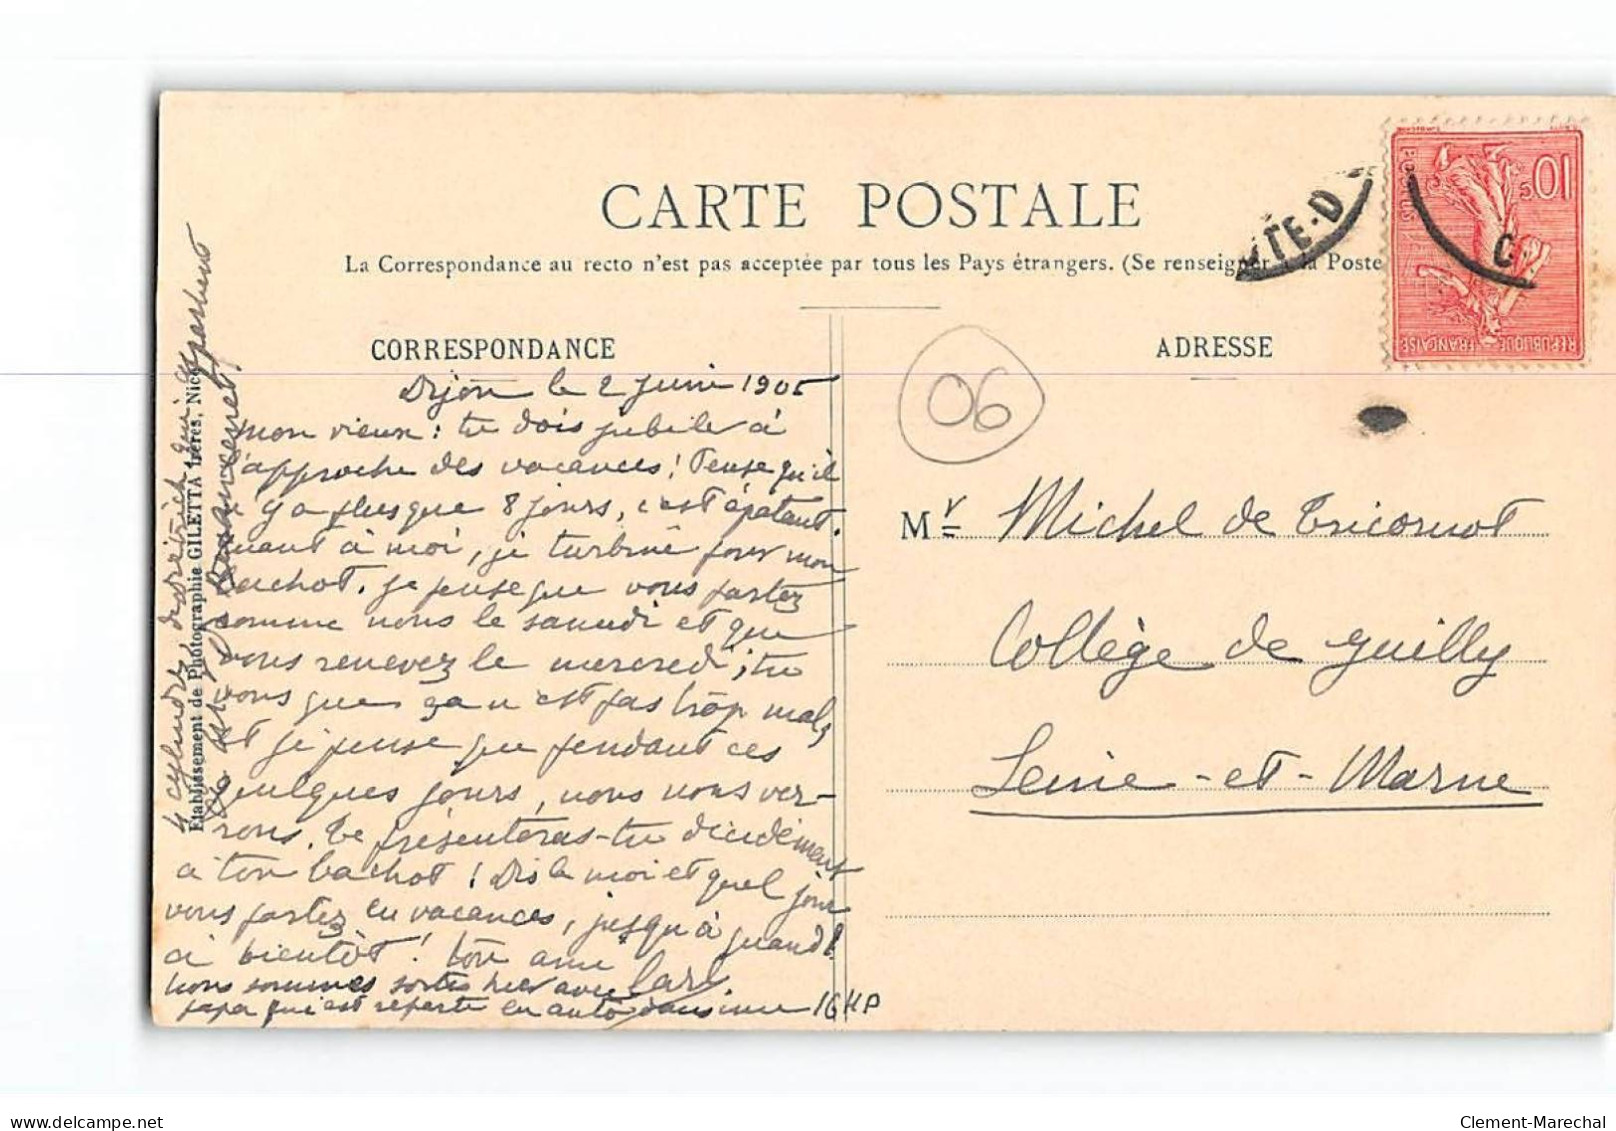 CARTE POSTALE
La Correspondance au recto n'est pas acceptée par tous les Pays étrangers. (Se renseigner à la Poste
CORRESPONDANCE
ADRESSE
06
10c
POSTES
RÉPUBLIQUE FRANÇAISE
TE-D
C
Dijon le 2 Juin 1905
Mon vieux : tu dois jubiler à
l'approche des vacances ! Pense qu'il
n'y a plus que 8 jours, c'est épatant.
Quant à moi, je turbine pour mon
bachot. Je pense que vous partez
comme nous le samedi et que
vous revenez le mercredi ; tu
vois que ça n'est pas trop mal,
et je pense que pendant ces
quelques jours, nous nous ver-
rons. Te présenteras-tu décidément
à ton bachot ! Dis le moi et quel jour
vous partez en vacances, jusqu'à quand !
à bientôt ! ton ami Carl.
Nous sommes sortis hier avec
papa qui est reparti en auto dans une 16 HP
4 cylindres, de Diétrich qui appartient
Etablissement de Photographie GILETTA frères, Nice
Mr Michel de Tricornot
Collège de Juilly
Seine-et-Marne
Clement-Marechal